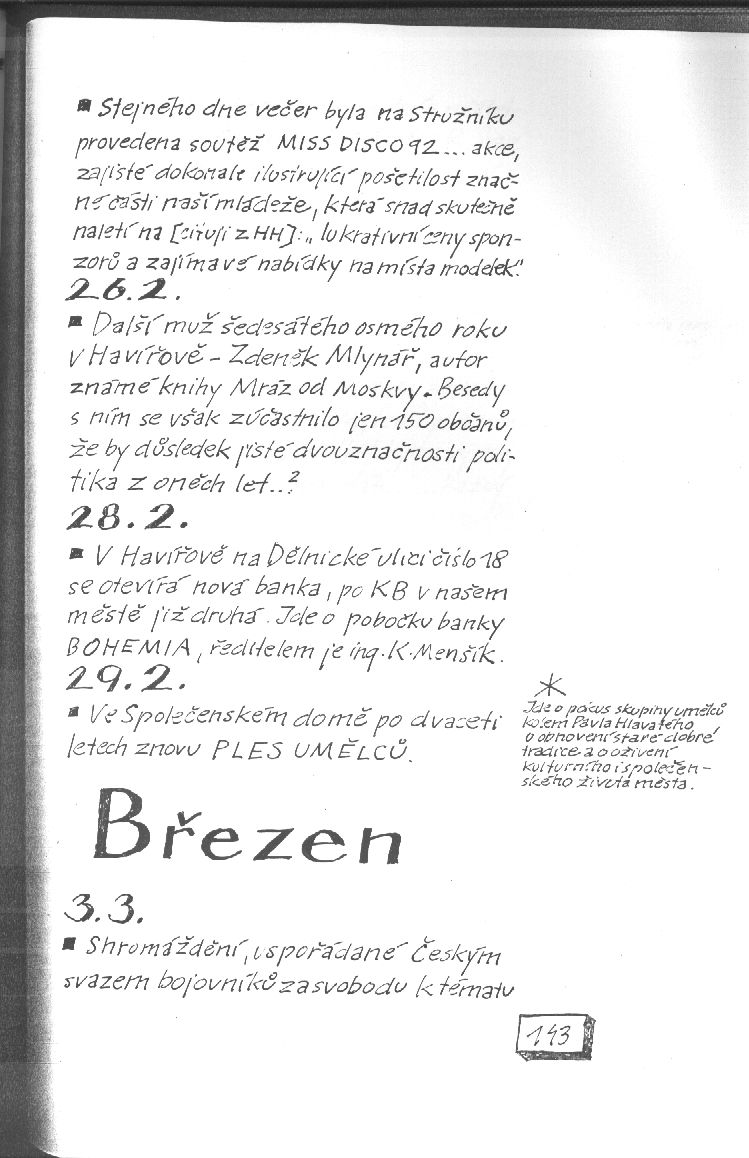 ■ Stejného dne večer byla na Stružníku
provedena soutěž MISS DISCO 92... akce,
zajisté dokonale ilustrující pošetilost znač-
né části naší mládeže, která snad skutečně
naletí na [cituji z HH]: „lukrativní ceny spon-
zorů a zajímavé nabídky na místa modelek."
26.2.
■ Další muž šedesátého osmého roku
v Havířově - Zdeněk Mlynář, autor
známé knihy Mráz od Moskvy. Besedy
s ním se však zúčastnilo jen 150 občanů,
že by důsledek jisté dvouznačnosti poli-
tika z oněch let..?
28.2.
■ V Havířově na Dělnické ulici číslo 18
se otevírá nová banka, po KB v našem
městě již druhá. Jde o pobočku banky
BOHEMIA, ředitelem je ing. K. Menšík.
29.2.
■ Ve Společenském domě po dvaceti
letech znovu PLES UMĚLCŮ.
*
Jde o pokus skupiny umělců
kolem Pavla Hlavatého
o obnovení staré dobré
tradice a o oživení
kulturního i společen-
ského života města.
Březen
3.3.
■ Shromáždění, uspořádané Českým
svazem bojovníků za svobodu k tématu
143